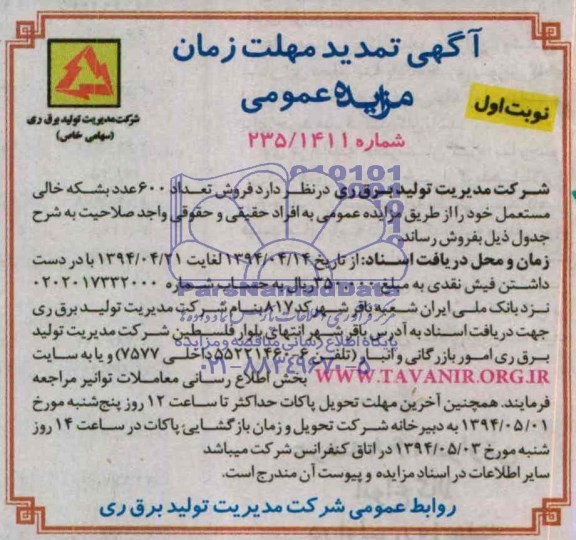 آگهی تمدید مهلت زمان
مزایده عمومی
نوبت اول
شرکت مدیریت تولید برق ری
(سهامی خاص)
شماره ۲۳۵/۱۴۱۱
شرکت مدیریت تولید برق ری درنظر دارد فروش تعداد ۶۰۰ عدد بشکه خالی
مستعمل خود را از طریق مزایده عمومی به افراد حقیقی و حقوقی واجد صلاحیت به شرح
جدول ذیل بفروش رساند.
زمان و محل دریافت اسناد: از تاریخ ۱۳۹۴/۰۴/۱۴ لغایت ۱۳۹۴/۰۴/۲۱ با در دست
داشتن فیش نقدی به مبلغ ریال به حساب شماره ۰۲۰۲۰۱۷۳۳۲۰۰۰
نزد بانک ملی ایران شعبه باقر شهر کد ۸۱۷ بنام شرکت مدیریت تولید برق ری
جهت دریافت اسناد به آدرس باقر شهر انتهای بلوار فلسطین شرکت مدیریت تولید
برق ری امور بازرگانی و انبار (تلفن ۶-۵۵۲۲۱۴۶۰ داخلی ۷۵۷۷) و یا به سایت
WWW.TAVANIR.ORG.IR بخش اطلاع رسانی معاملات توانیر مراجعه
فرمایند. همچنین آخرین مهلت تحویل پاکات حداکثر تا ساعت ۱۲ روز پنج‌شنبه مورخ
۱۳۹۴/۰۵/۰۱ به دبیرخانه شرکت تحویل و زمان بازگشایی پاکات در ساعت ۱۴ روز
شنبه مورخ ۱۳۹۴/۰۵/۰۳ در اتاق کنفرانس شرکت میباشد
سایر اطلاعات در اسناد مزایده و پیوست آن مندرج است.
روابط عمومی شرکت مدیریت تولید برق ری
ParsNamadData
پایگاه اطلاع رسانی مناقصه و مزایده
۰۲۱-۸۸۳۴۹۶۷۰-۵